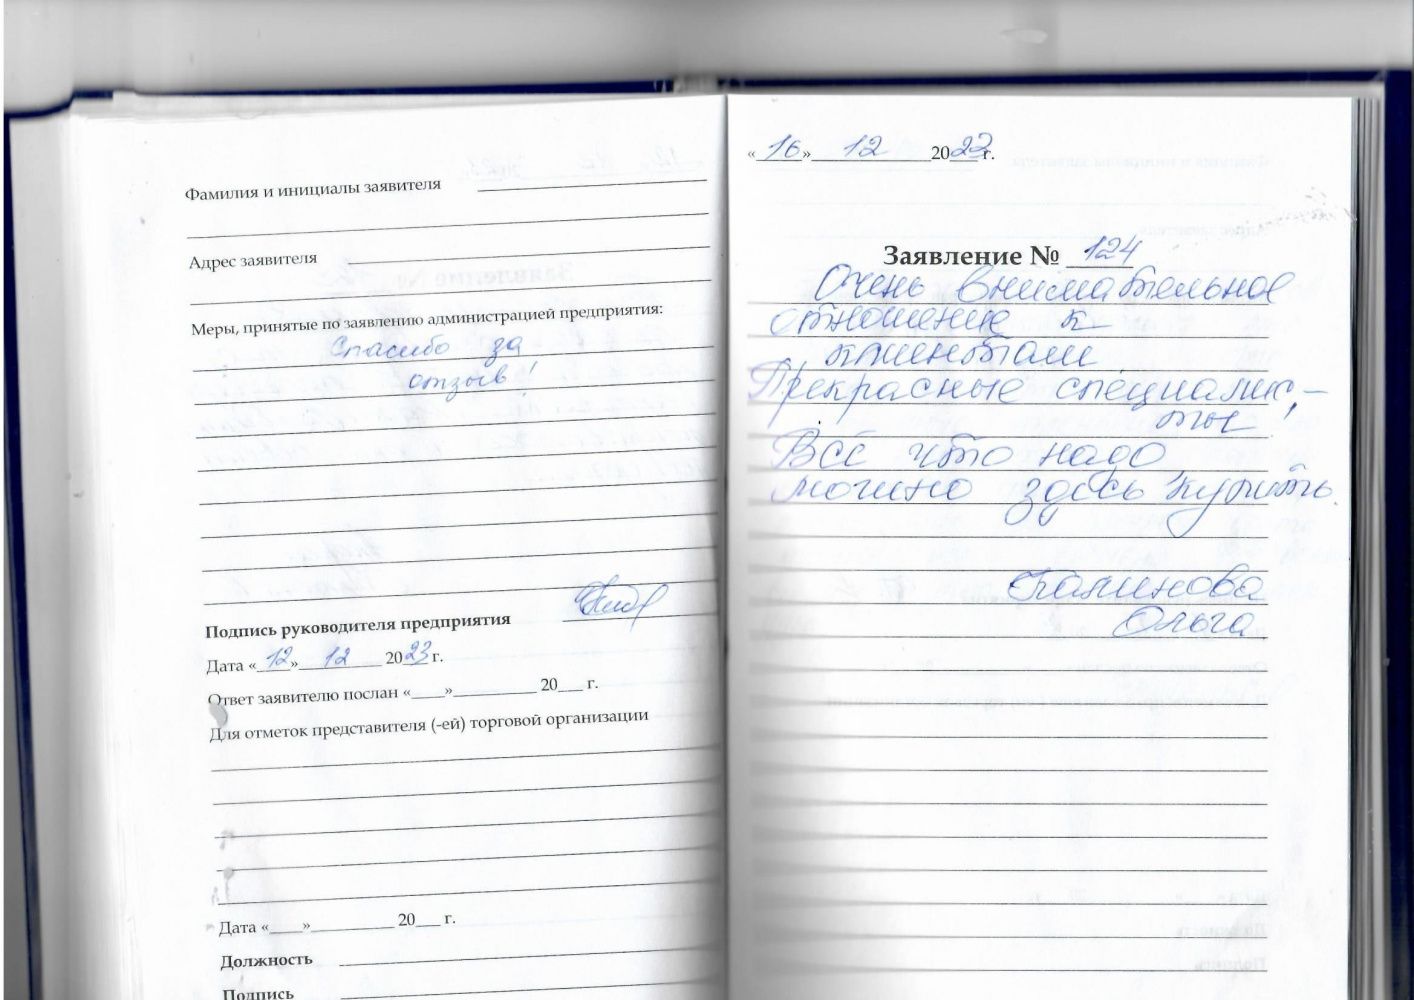 Фамилия и инициалы заявителя
Адрес заявителя
Меры, принятые по заявлению администрацией предприятия:
Спасибо за
отзыв!
Подпись руководителя предприятия
Дата «12» 12 2023 г.
Ответ заявителю послан «____»__________ 20___ г.
Для отметок представителя (-ей) торговой организации
Дата «____»__________ 20___ г.
Должность
Подпись
«16» 12 2023 г.
Заявление № 124
Очень внимательное
отношение к
клиентам
Прекрасные специалис,-
ты
Всё что надо
можно здесь купить.
Ольга